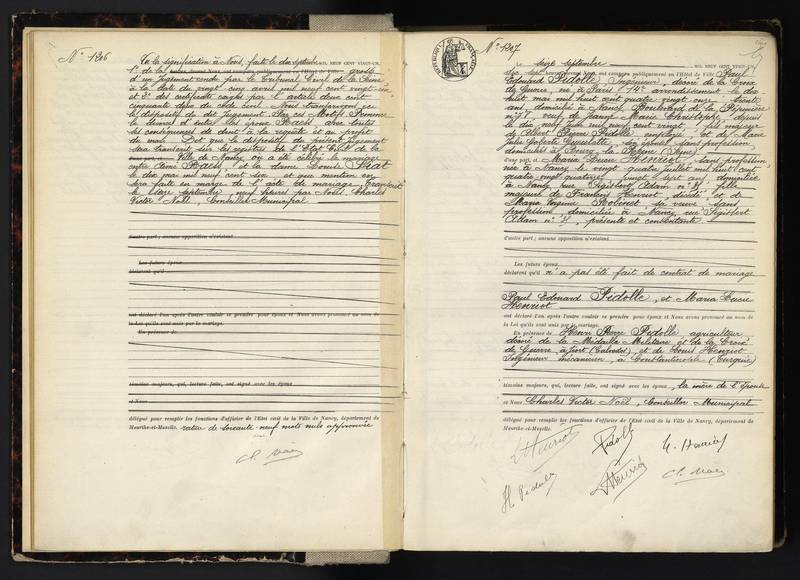 N° 1206
Vu la signification à Nous, faite le dix septembre MIL NEUF CENT VINGT-UN,
1° de la grosse
d'un jugement rendu par le Tribunal Civil de la Seine
à la date du vingt cinq avril mil neuf cent vingt un
et 2° des certificats exigés par l'article deux cent
cinquante deux du code civil. Nous transcrivons ici
le dispositif du dit jugement. Par ces Motifs Prononce
le divorce d'entre les époux Haas avec toutes
les conséquences de droit à la requête et au profit
du mari. Dit que le dispositif du présent jugement
sera transcrit sur les registres de l'Etat Civil de la
Ville de Nancy où a été célébré le mariage
entre Haas et la dame
le dix mai mil neuf cent six et que mention en
sera faite en marge de l'acte de mariage, transcrit
le septembre, neuf heures par Noël Charles
Victor Noël, Conseiller Municipal
d'autre part ; aucune opposition n'existant
Les futurs époux
déclarent qu'il
ont déclaré l'un après l'autre vouloir se prendre pour époux et Nous avons prononcé au nom de
la Loi qu'ils sont unis par le mariage.
En présence de
témoins majeurs, qui, lecture faite, ont signé avec les époux
et Nous
délégué pour remplir les fonctions d'officier de l'Etat civil de la Ville de Nancy, département de
Meurthe-et-Moselle. rature de soixante neuf mots nuls approuvée
Ch. Noël
N° 1207
Le seize septembre MIL NEUF CENT VINGT-UN,
dix sept heures devant Nous, ont comparu publiquement en l'Hôtel de Ville Paul
Edouard Pidolle, Ingénieur, décoré de la Croix
de Guerre, né à Paris 14e arrondissement le dix
huit mai mil huit cent quatre vingt onze, trente
ans, domicilié à Nancy, Boulevard de la Pépinière
n° 37, veuf de Jeanne Marie Christophe, depuis
le dix neuf mai mil neuf cent vingt, fils majeur
de Albert Pierre Pidolle, employé, et de Marie
Julie Roberte Gueulatte, son épouse sans profession
domiciliés à Bourg la Reine (Seine)
d'une part, et Maria Lucie Henriot, sans profession
née à Nancy le vingt quatre juillet mil huit cent
quatre vingt quatorze, vingt sept ans, domiciliée
à Nancy rue Sigisbert Adam n° 31, fille
majeure de François Henriot, décédé, et de
Maria Eugénie Robinet, sa veuve, sans
profession, domiciliée à Nancy, rue Sigisbert
Adam n° 31, présente et consentante
d'autre part ; aucune opposition n'existant
Les futurs époux
déclarent qu'il n'a pas été fait de contrat de mariage
Paul Edouard Pidolle, et Maria Lucie
Henriot
ont déclaré l'un après l'autre vouloir se prendre pour époux et Nous avons prononcé au nom de
la Loi qu'ils sont unis par le mariage.
En présence de Henri Pierre Pidolle agriculteur
décoré de la Médaille Militaire et de la Croix
de Guerre, à (Calvados), et de Louis Henriot
Ingénieur mécanicien, à Constantinople (Turquie)
témoins majeurs, qui, lecture faite, ont signé avec les époux, la mère de l'épouse
et Nous Charles Victor Noël, Conseiller Municipal
délégué pour remplir les fonctions d'officier de l'Etat civil de la Ville de Nancy, département de
Meurthe-et-Moselle.
L Henriot
Pidolle
H Pidolle
L Henriot
Ch. Noël